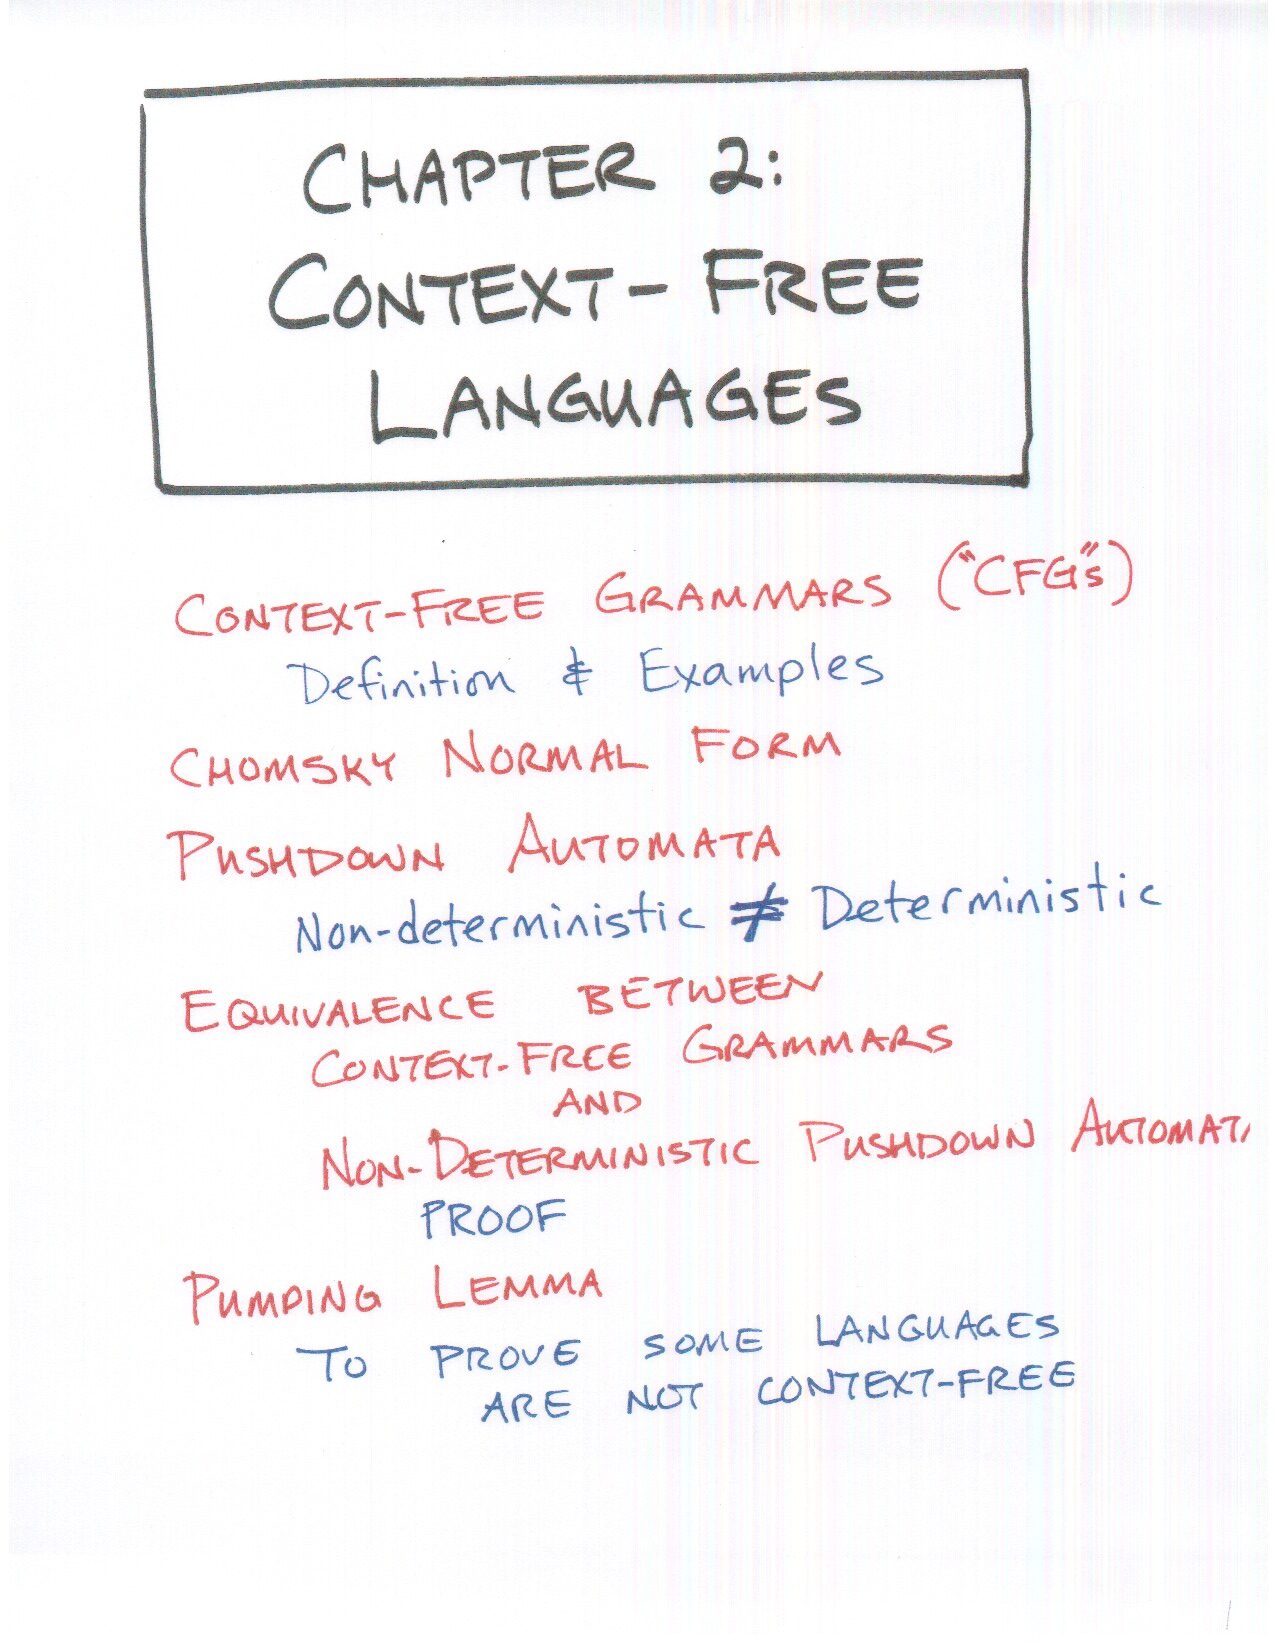 CHAPTER 2:
CONTEXT-FREE
LANGUAGES
CONTEXT-FREE GRAMMARS ("CFG"s)
Definition & Examples
CHOMSKY NORMAL FORM
PUSHDOWN AUTOMATA
Non-deterministic ≠ Deterministic
EQUIVALENCE BETWEEN
CONTEXT-FREE GRAMMARS
AND
NON-DETERMINISTIC PUSHDOWN AUTOMAT
PROOF
PUMPING LEMMA
TO PROVE SOME LANGUAGES
ARE NOT CONTEXT-FREE